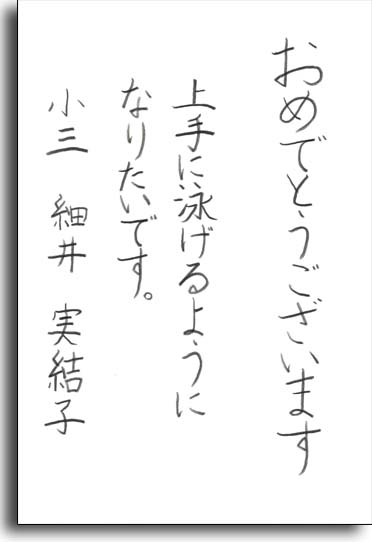 おめでとうございます
上手に泳げるように
なりたいです。
小三 細井 実結子